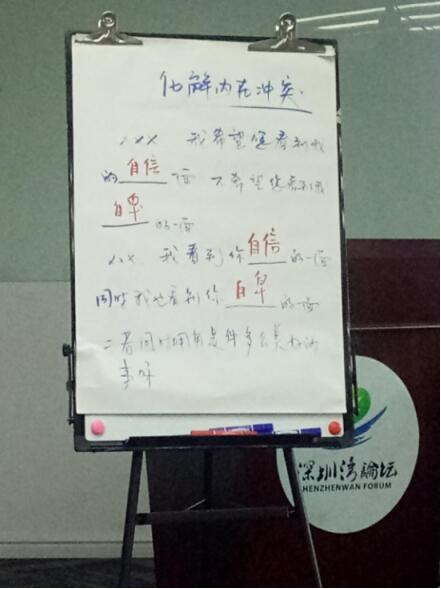 化解内在冲突.
xxx 我希望您看到我
的自信一面 不希望您看到我
自卑的一面
xxx 我看到你自信的一面
同时我也看到你自卑的一面
二者同时拥有是件多么美好的
事呀
深圳湾論坛
SHENZHENWAN FORUM